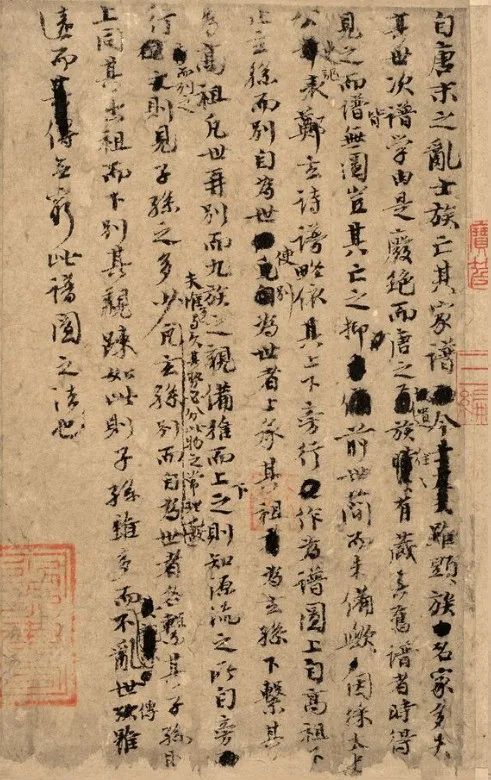 自唐末之亂士族亡其家譜今雖顯族名家多失
其世次譜學由是廢絕而唐之遺族往往有藏其舊譜者時得
見之而譜皆無圖豈其亡之抑前世簡而未備歟因採太史
公史記表鄭玄詩譜略依其上下旁行作為譜圖上自高祖下
止玄孫而別自為世使別為世者上承其祖為玄孫下繫其
孫為高祖凡世再別而九族之親備推而上下之則知源流之所自旁
行而列之則見子孫之多少夫惟多與久其勢必分此物之常理也凡玄孫別而自為世者各繫其子孫則
上同其出祖而下別其親疎如此則子孫雖多而不亂世傳雖
遠而無窮此譜圖之法也